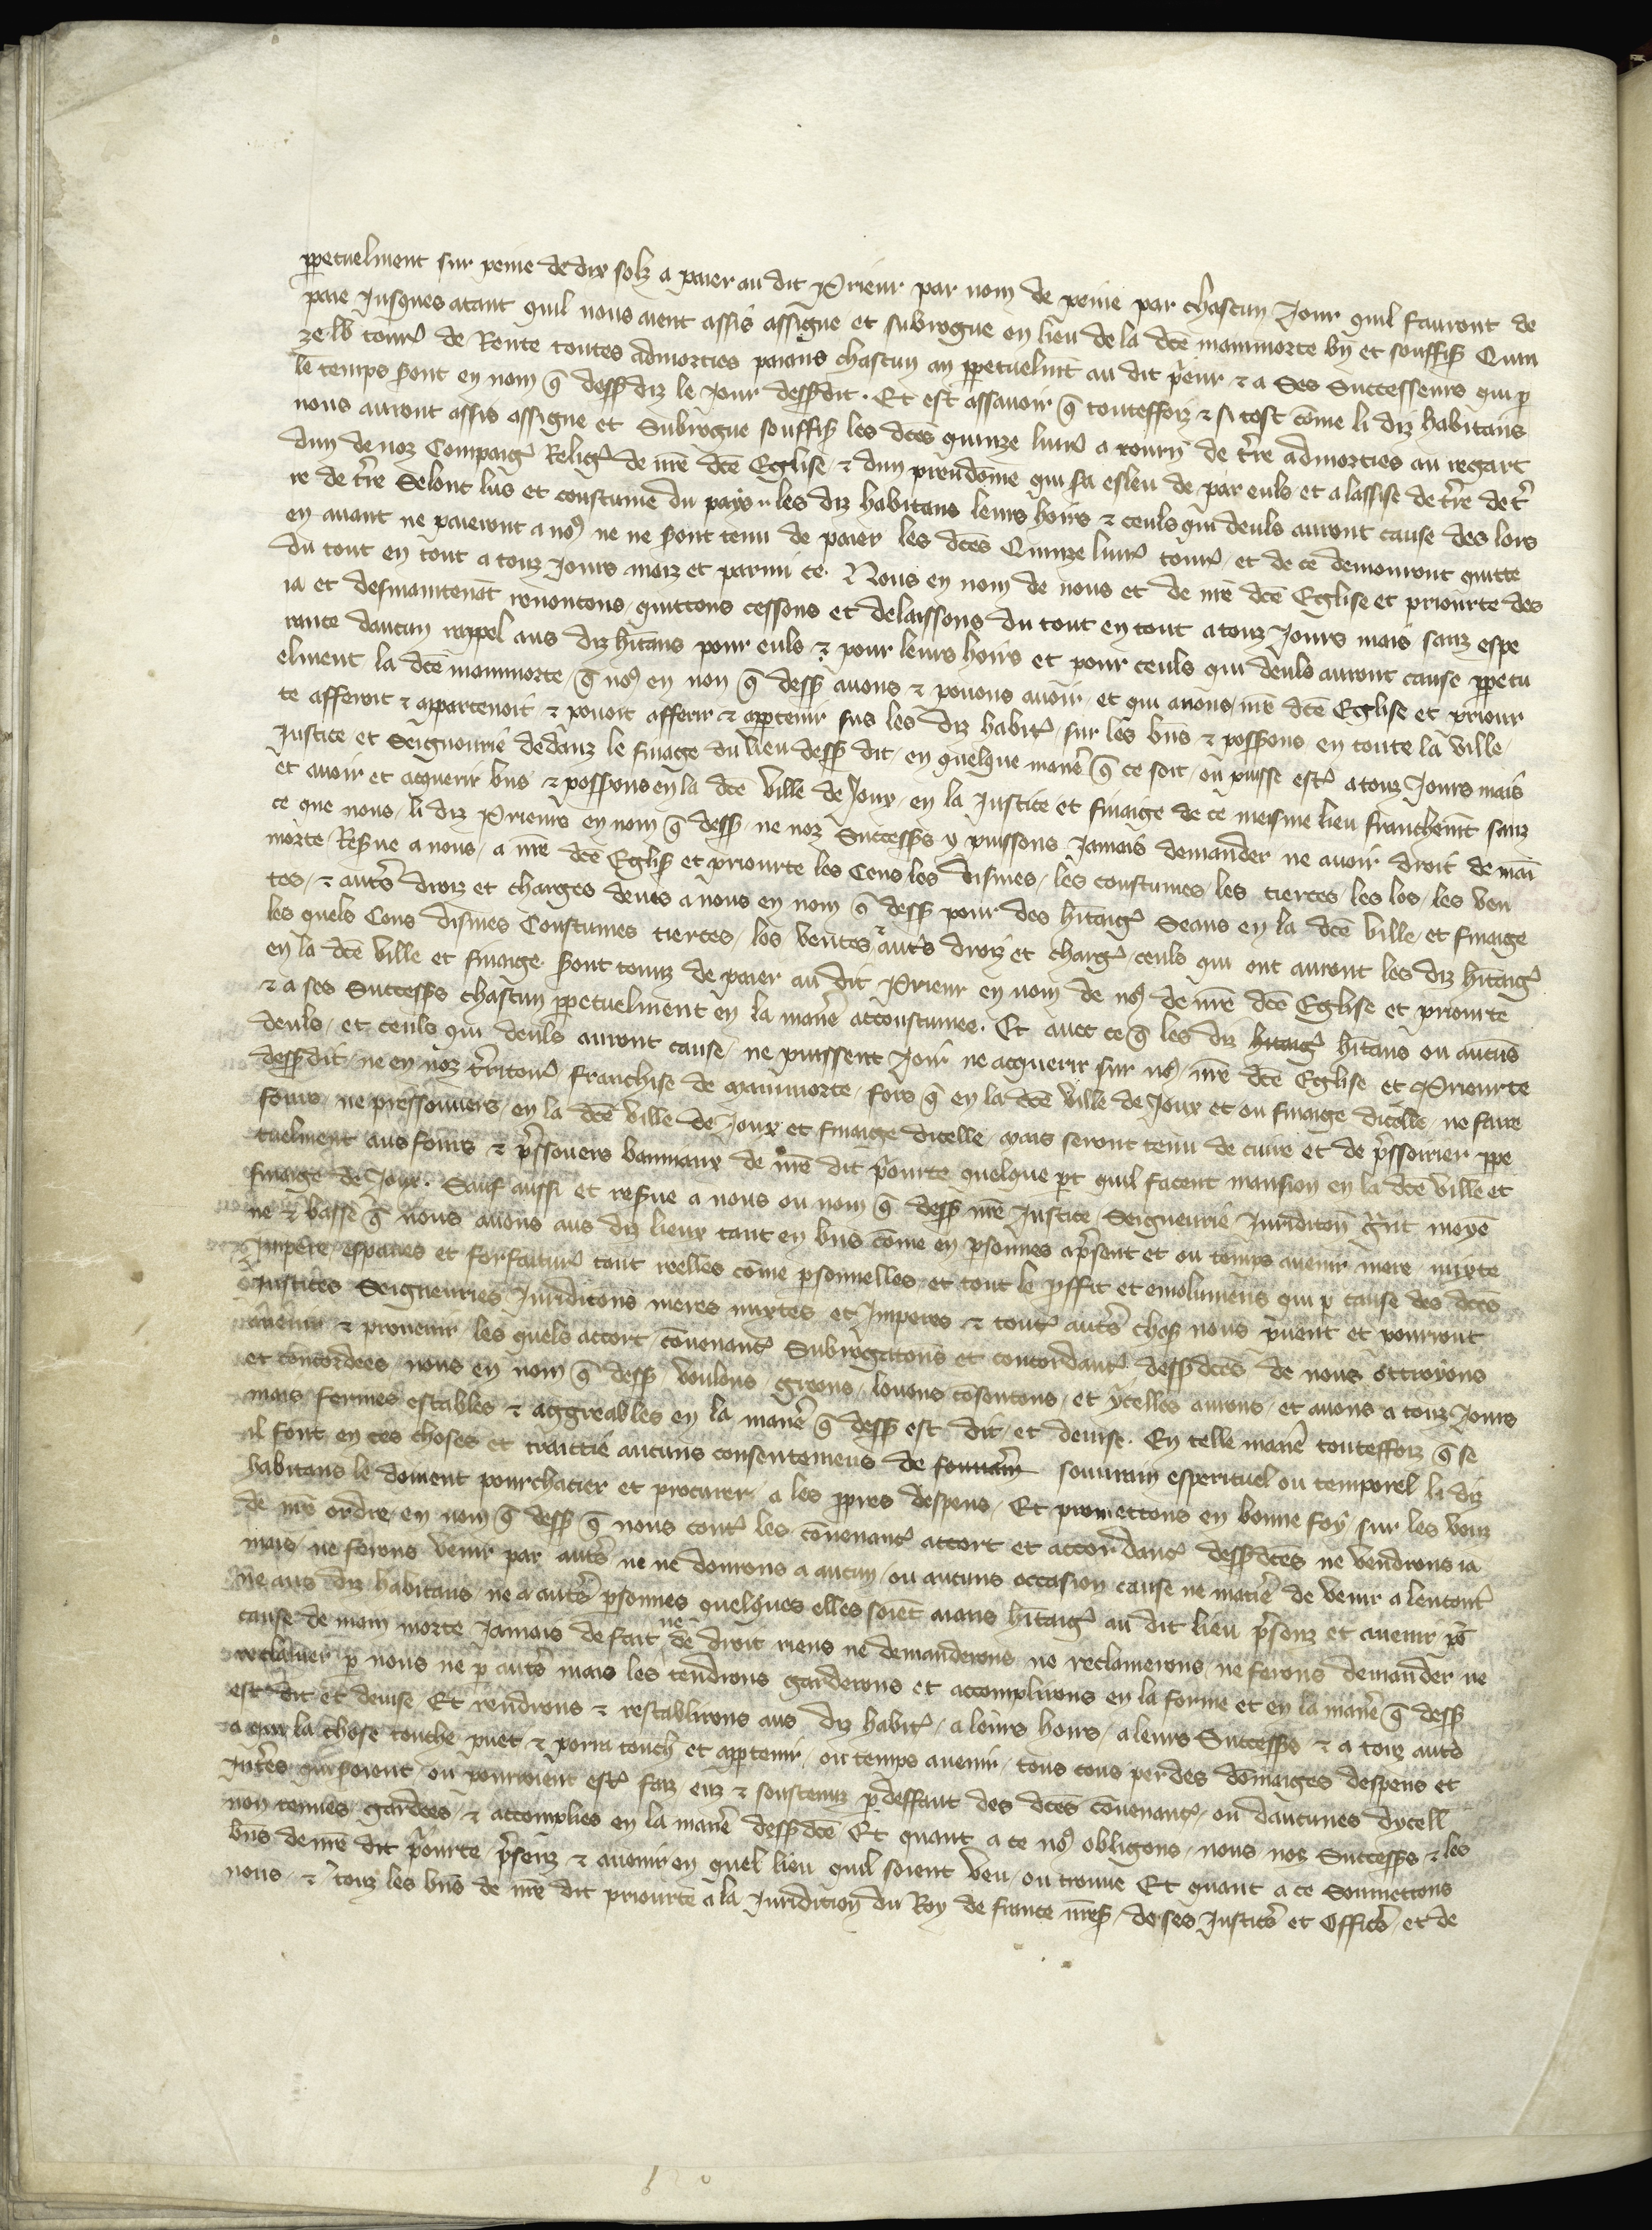 ꝑpetuelment sur peine de dix solz a paier au dit Prieur par nom de peine par chascun Jour quil fauront de
paie Jusques atant quil nous aient assis assigne et subrogue en lieu de la dcē mainmorte bn̄ et souffis Quin
ze lb tourꝰ de Rente toutes admorties paians chascun an ꝑpetuelmt̄ au dit pͥeur ⁊ a Ses Successeurs qui ꝑ
le temps ẜont en nom q̄ dessꝰ diz le Jour dessꝰdit. Et est assauoir q̄ touteffoiz ⁊ si tost cōme li diz habitans
nous auront assis assigne et Subrogue souffis les dcēs quinze liurꝰ a tourn̄ de tr̄re admorties au regart
dun de noz Compaigꝰ Religꝰ de nrē dcē Eglise ⁊ dun preudome qui sa esleu de par euls et a lassise de tr̄re de tr̄
re de tr̄re Selont lus et coustume du pays les diz habitans leurs hoirs ⁊ ceuls qui deuls auront cause des lors
en auant ne paieront a noꝰ ne ne ẜont tenu de paier les dcēs Quinze liurꝰ tourꝰ et de ce demourront quitte
du tout en tout a touz Jours maiz et parmi ce. Nous en nom de nous et de nrē dcē Eglise et priourte des
ia et desmaintenāt renontons quittons cessons et delaissons du tout en tout a touz Jours mais sanz espe
rance daucun rappel aus diz hītans pour euls ⁊ pour leurs hoirs et pour ceuls qui deuls auront cause ꝑpetu
elment la dcē mainmorte q̄ noꝰ en non q̄ dessꝰ auons ⁊ pouons auoir et qui a nous nrē dcē Eglise et priour
te afferoit ⁊ appartenoit ⁊ pouoit afferir ⁊ apptenir sus les diz habitꝰ sur les bn̄s ⁊ possons en toute la ville
Justice et Seigneurie dedanz le finage du lieu dessꝰ dit en quelque manꝰe q̄ ce soit ou puisse estꝰ a touz Jours mais
et auoir et acquerir bn̄s ⁊ possons en la dcē ville de Joux en la Justice et finaige de ce meisme lieu franchemt̄ sanz
ce que nous li diz Prieurs en nom q̄ dessꝰ ne noz Successꝰs y puissons Jamais demander ne auoir droit de main
morte Resꝰue a nous a nrē dcē Eglisꝰ et priourte les Cens les dismes les coustumes les tierces les los les ven
tes ⁊ autꝰs droiz et charges deues a nous en nom q̄ dessꝰ pour des hītaigꝰ Seans en la dcē ville et finaige
les quels Cens dismes Coustumes tierces los ventes ⁊ autꝰs droiz et chargꝰ ceuls qui ont auront les diz hītaigꝰ
en la dcē ville et finaige ẜont tenuz de paier au dit Prieur en nom de noꝰ de nrē dcē Eglise et priourte
⁊ a ses Successꝰs chascun ꝑpetuelment en la manꝰe accoustumee. Et auec ce q̄ les diz hītaigꝰ hītans ou aucuns
deuls et ceuls qui deuls auront cause ne puissent Joir ne acquerir sur noꝰ nrē dcē Eglise et Priourte
dessꝰdit ne en noz tr̄ritourꝰ franchise de mainmorte fors q̄ en la dcē ville de Joux et ou finaige dicelle ne faire
fours ne pressouuers en la dcē ville de Joux et finaige dicelle mais seront tenu de cuire et de pͥssoirier ꝑpe
tuelment aus fours ⁊ pͥssouers bannaux de nrē dit pͥourte quelque ꝑt quil facent mansion en la dcē ville et
finage de Joux. Sauf aussi et resꝰue a nous ou nom q̄ dessꝰ nrē Justice Seigneurie Juridicōn gͣnt moyē
ne ⁊ basse q̄ nous auons aus diz lieux tant en bn̄s cōme en ꝑsonnes apͥsent et ou temps auenir mere mixte
Impere espaues et forfaiturꝰ tant reelles cōme ꝑsonnelles et tout le ꝓffit et emolumens qui ꝑ cause des dcēs
Justices Seigneuries Juridicōns meres mixtes et Imperes ⁊ toutꝰ autꝰs chosꝰ nous pͥuent et pourront
auenir ⁊ prouenir les quels accort conuenantꝰ Subrogacōns et concordantꝰ dessꝰdcēs de nous ottroyons
et concordees nous en nom q̄ dessꝰ voulons greons louons cōsentons et ycelles aurons et auons a touz Jours
mais fermes estables ⁊ aggreables en la manꝰe q̄ dessꝰ est dit et deuise. En telle manꝰe touteffoiz q̄ se
il font en ces choses et traittie aucuns consentemens de souuain souurain esperituel ou temporel li diz
habitans le doiuent pourchacier et procurer a les ꝓpres despens Et promettons en bonne foy sur les vouz
de nrē ordre en nom q̄ dessꝰ q̄ nous contꝰ les conuenantꝰ accort et accordancꝰ dessꝰdcēs ne vendrons ia
mais ne ferons venir par autꝰs ne ne donrons a aucun ou aucuns occasion cause ne matiꝰe de venir a lencontꝰ
ne aus diz habitans ne a autꝰs ꝑsonnes quelques elles soiēt aians hītaigꝰ au dit lieu pͥsenz et auenir pͦ
cause de main morte Jamais de fait ne de droit riens ne demanderons ne reclamerons ne ferons demander ne
reclamer ꝑ nous ne ꝑ autꝰs mais les tendrons garderons et accomplirons en la forme et en la manꝰe q̄ dessꝰ
est dit et deuise Et rendrons ⁊ restablirons aus diz habitꝰ a leurs hoirs a leurs Successꝰs ⁊ a touz autꝰs
a qui la chose touche puet ⁊ porra touchꝰ et apptenir ou temps auenir tous cous perdes dōmaiges despens et
Intꝰes qui seroient ou pourroient estꝰ faiz euz ⁊ soustenuz ꝑ deffaut des dcēs cōuenantꝰ ou daucunes dycell
non tenues gardees ⁊ accomplies en la manꝰe dessꝰdcē Et quant a ce noꝰ obligons nous noz Successꝰs ⁊ les
bn̄s de nrē dit pͥourte pͥsenz ⁊ auenir en quel lieu quil soient veu ou trouue Et quant a ce Soumettons
nous ⁊ touz les bn̄s de nrē dit priourte a la Juridicion du Roy de france nrēsꝰ de ses Justicꝰs et Officꝰs et de